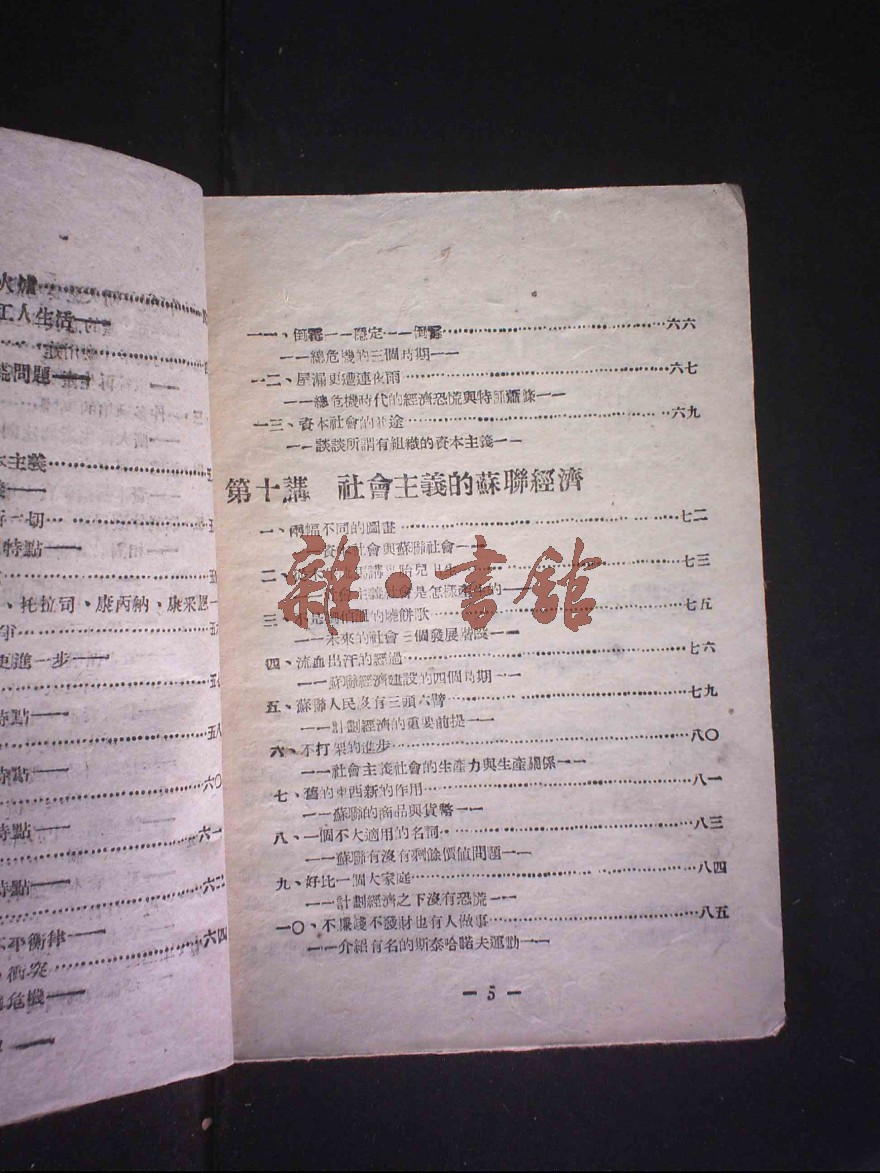 火爐
工人生活——
慌問題——
本主義
好一切
特點——
、托拉司、康丙納、康采恩
五
更進一步——
特點——
五八
特點——
六〇
特點——
六一
特點——
六二
不平衡律——
六四
衝突
危機——
一一、倒霉——穩定——倒霉……六六
——總危機的三個時期——
一二、屋漏更遭連夜雨……六七
——總危機時代的經濟恐慌與特種蕭條——
一三、資本社會的 途……六九
——談談所謂有組織的資本主義——
第十講 社會主義的蘇聯經濟
一、兩幅不同的圖畫……七二
——資本社會與蘇聯社會——
二、……七三
——社會主義社會是怎樣產生的——
三、不是劉伯溫的燒餅歌……七五
——未來的社會三個發展階段——
四、流血出汗的經過……七六
——蘇聯經濟建設的四個時期——
五、蘇聯人民沒有三頭六臂……七九
——計劃經濟的重要前提——
六、不打架的進步……八〇
——社會主義社會的生產力與生產關係——
七、舊的東西新的作用……八一
——蘇聯的商品與貨幣——
八、一個不大適用的名詞……八三
——蘇聯有沒有剩餘價值問題——
九、好比一個大家庭……八四
——計劃經濟之下沒有恐慌——
一〇、不賺錢不發財也有人做事……八五
——介紹有名的斯泰哈諾夫運動——
— 5 —
雜·書館